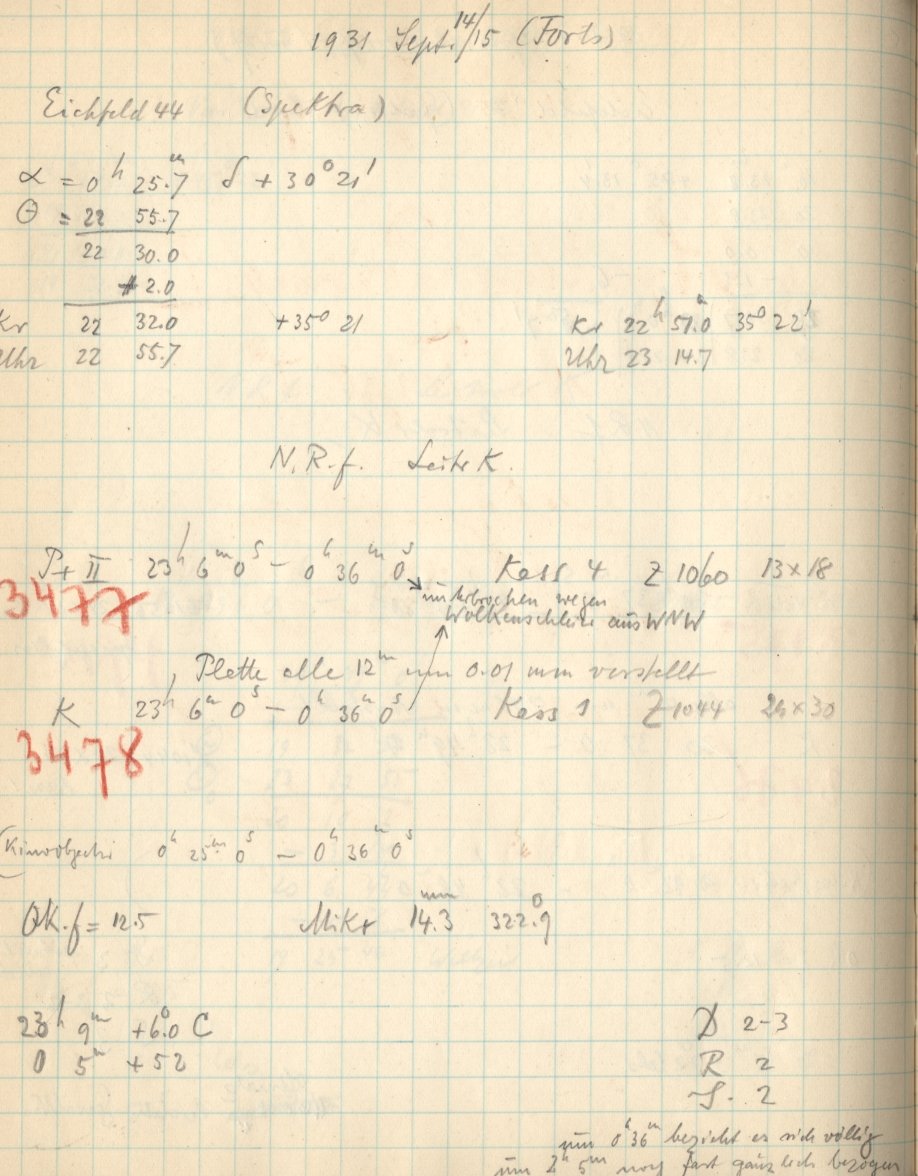 1931 Sept. 14/15 (Forts)
Eichfeld 44 (Spektra)
α = 0h 25.m7 δ + 30° 21'
Θ = 22 55.7
22 30.0
2.0
Kr 22 32.0 +35° 21
Uhr 22 55.7
Kr 22h 51.0 35° 22'
Uhr 23 14.7
N.R.f. Leitr K.
P+ II 23h 6m 0s – 0h 36m 0s Kass 4 Z 1060 13x18
3477
unterbrochen wegen
Wolkenschleier aus WNW
, Platte alle 12m um 0.01 mm verstellt
K 23h 6m 0s – 0h 36m 0s Kass 1 Z 1044 24x30
3478
(Kinoobjectiv 0h 25m 0s – 0h 36m 0s
OK.f = 12.5 Mikr 14.3mm 322.°9
23h 9m +6.°0 C
0 5m +52
D 2-3
R 2
S. 2
um 0h 36m bezieht es sich völlig
um 2h 5m noch fast gänzlich bezogen